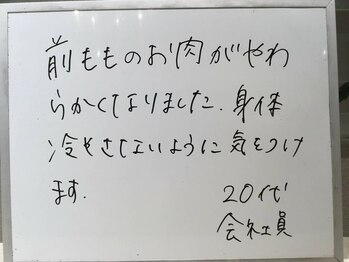 前もものお肉がやわ
らかくなりました. 身体
冷やさないように気をつけ
ます.
20代
会社員